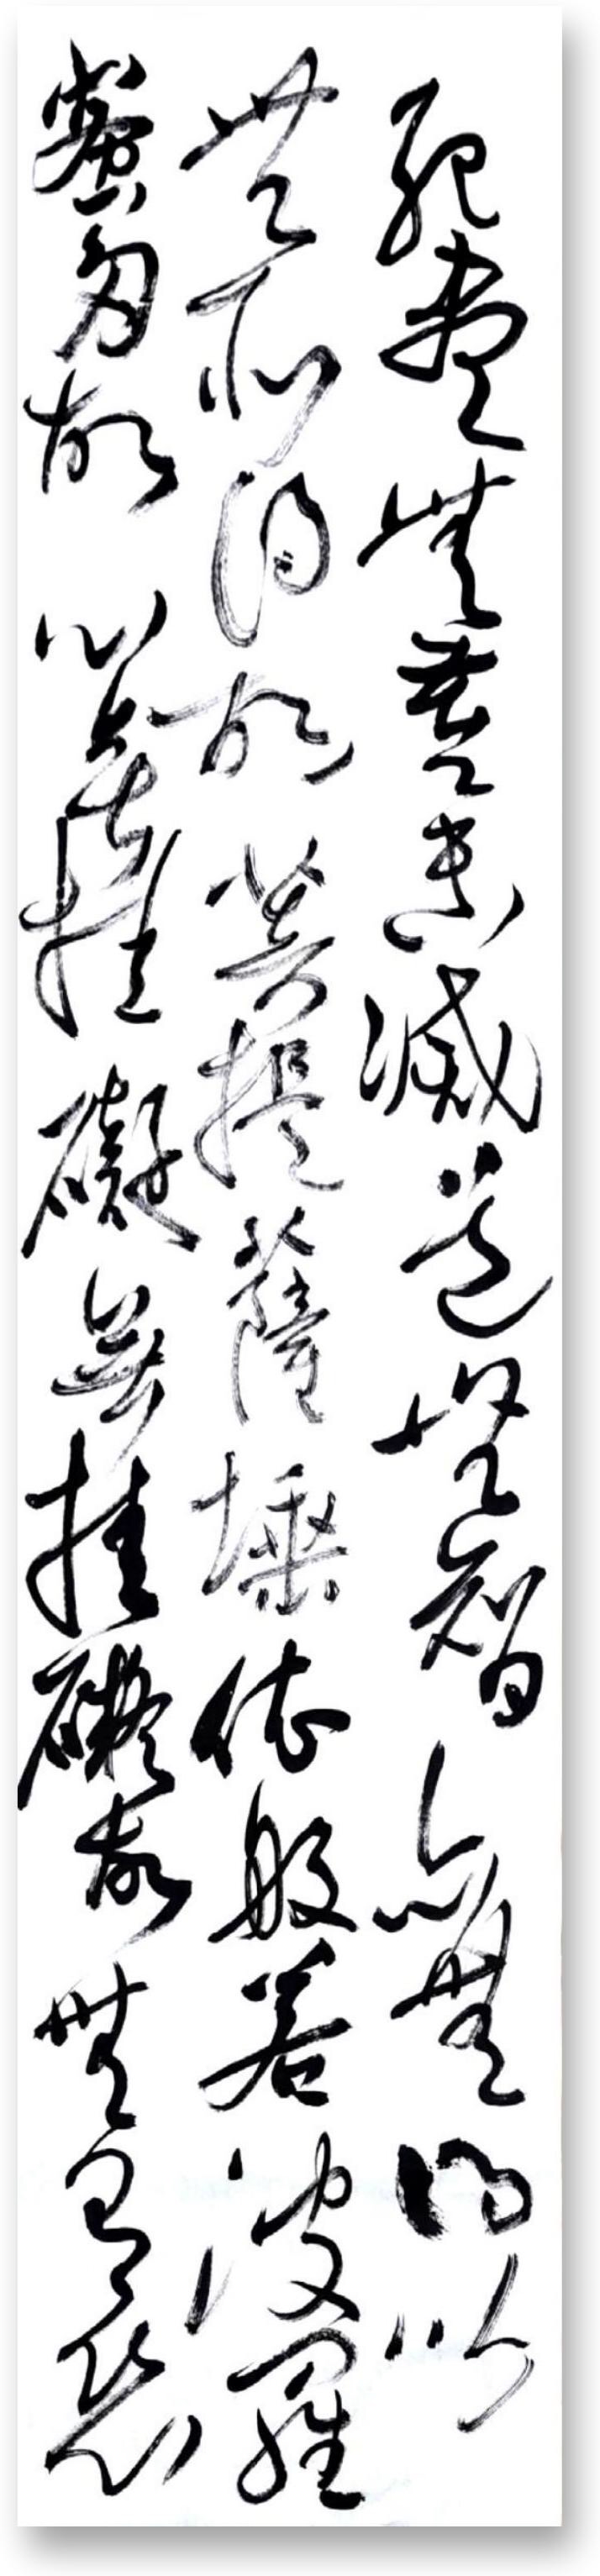 死盡無苦集滅道無智亦無得以
無所得故菩提薩埵依般若波羅
蜜多故心無挂礙無挂礙故無有恐